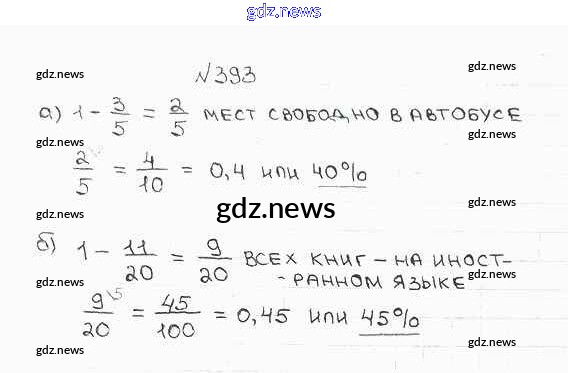 gdz.news
№393
gdz.news
gdz.news
а) 1 - 3/5 = 2/5 мест свободно в автобусе
gdz.news
gdz.news
2/5 = 4/10 = 0,4 или 40%
gdz.news
gdz.news
gdz.news
gdz.news
б) 1 - 11/20 = 9/20 всех книг - на иност-
- ранном языке
gdz.news
gdz.news
9\5/20 = 45/100 = 0,45 или 45%
gdz.news
gdz.news